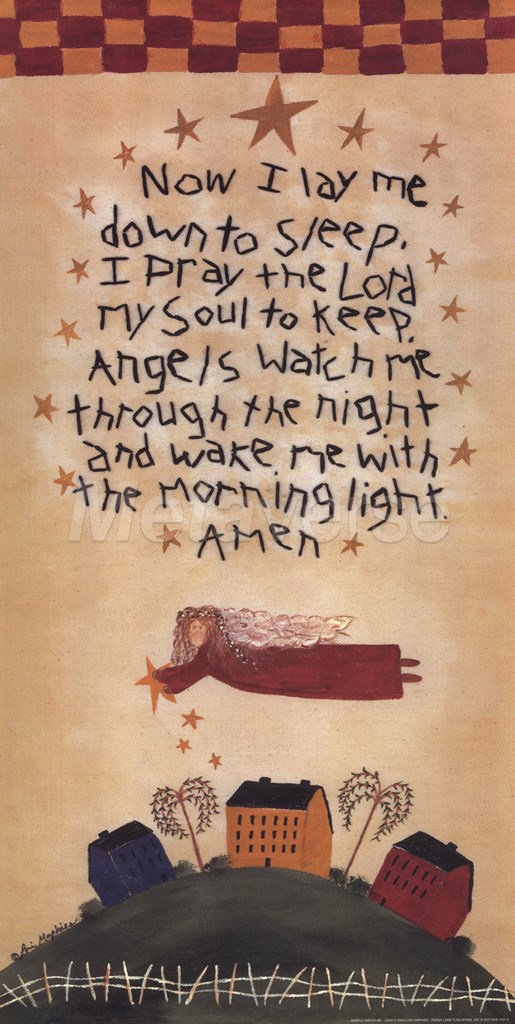 Now I lay me
down to sleep.
I pray the Lord
my soul to keep.
Angels watch me
through the night
and wake me with
the morning light.
Amen
Metaverse